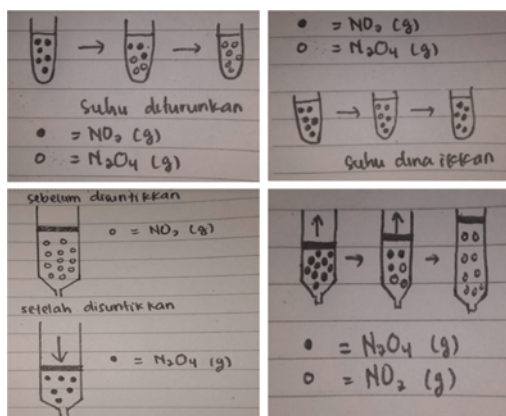 suhu diturunkan
• = NO₂ (g)
○ = N₂O₄ (g)
• = NO₂ (g)
○ = N₂O₄ (g)
suhu dinaikkan
sebelum disuntikkan
○ = NO₂ (g)
setelah disuntikkan
• = N₂O₄ (g)
• = N₂O₄ (g)
○ = NO₂ (g)